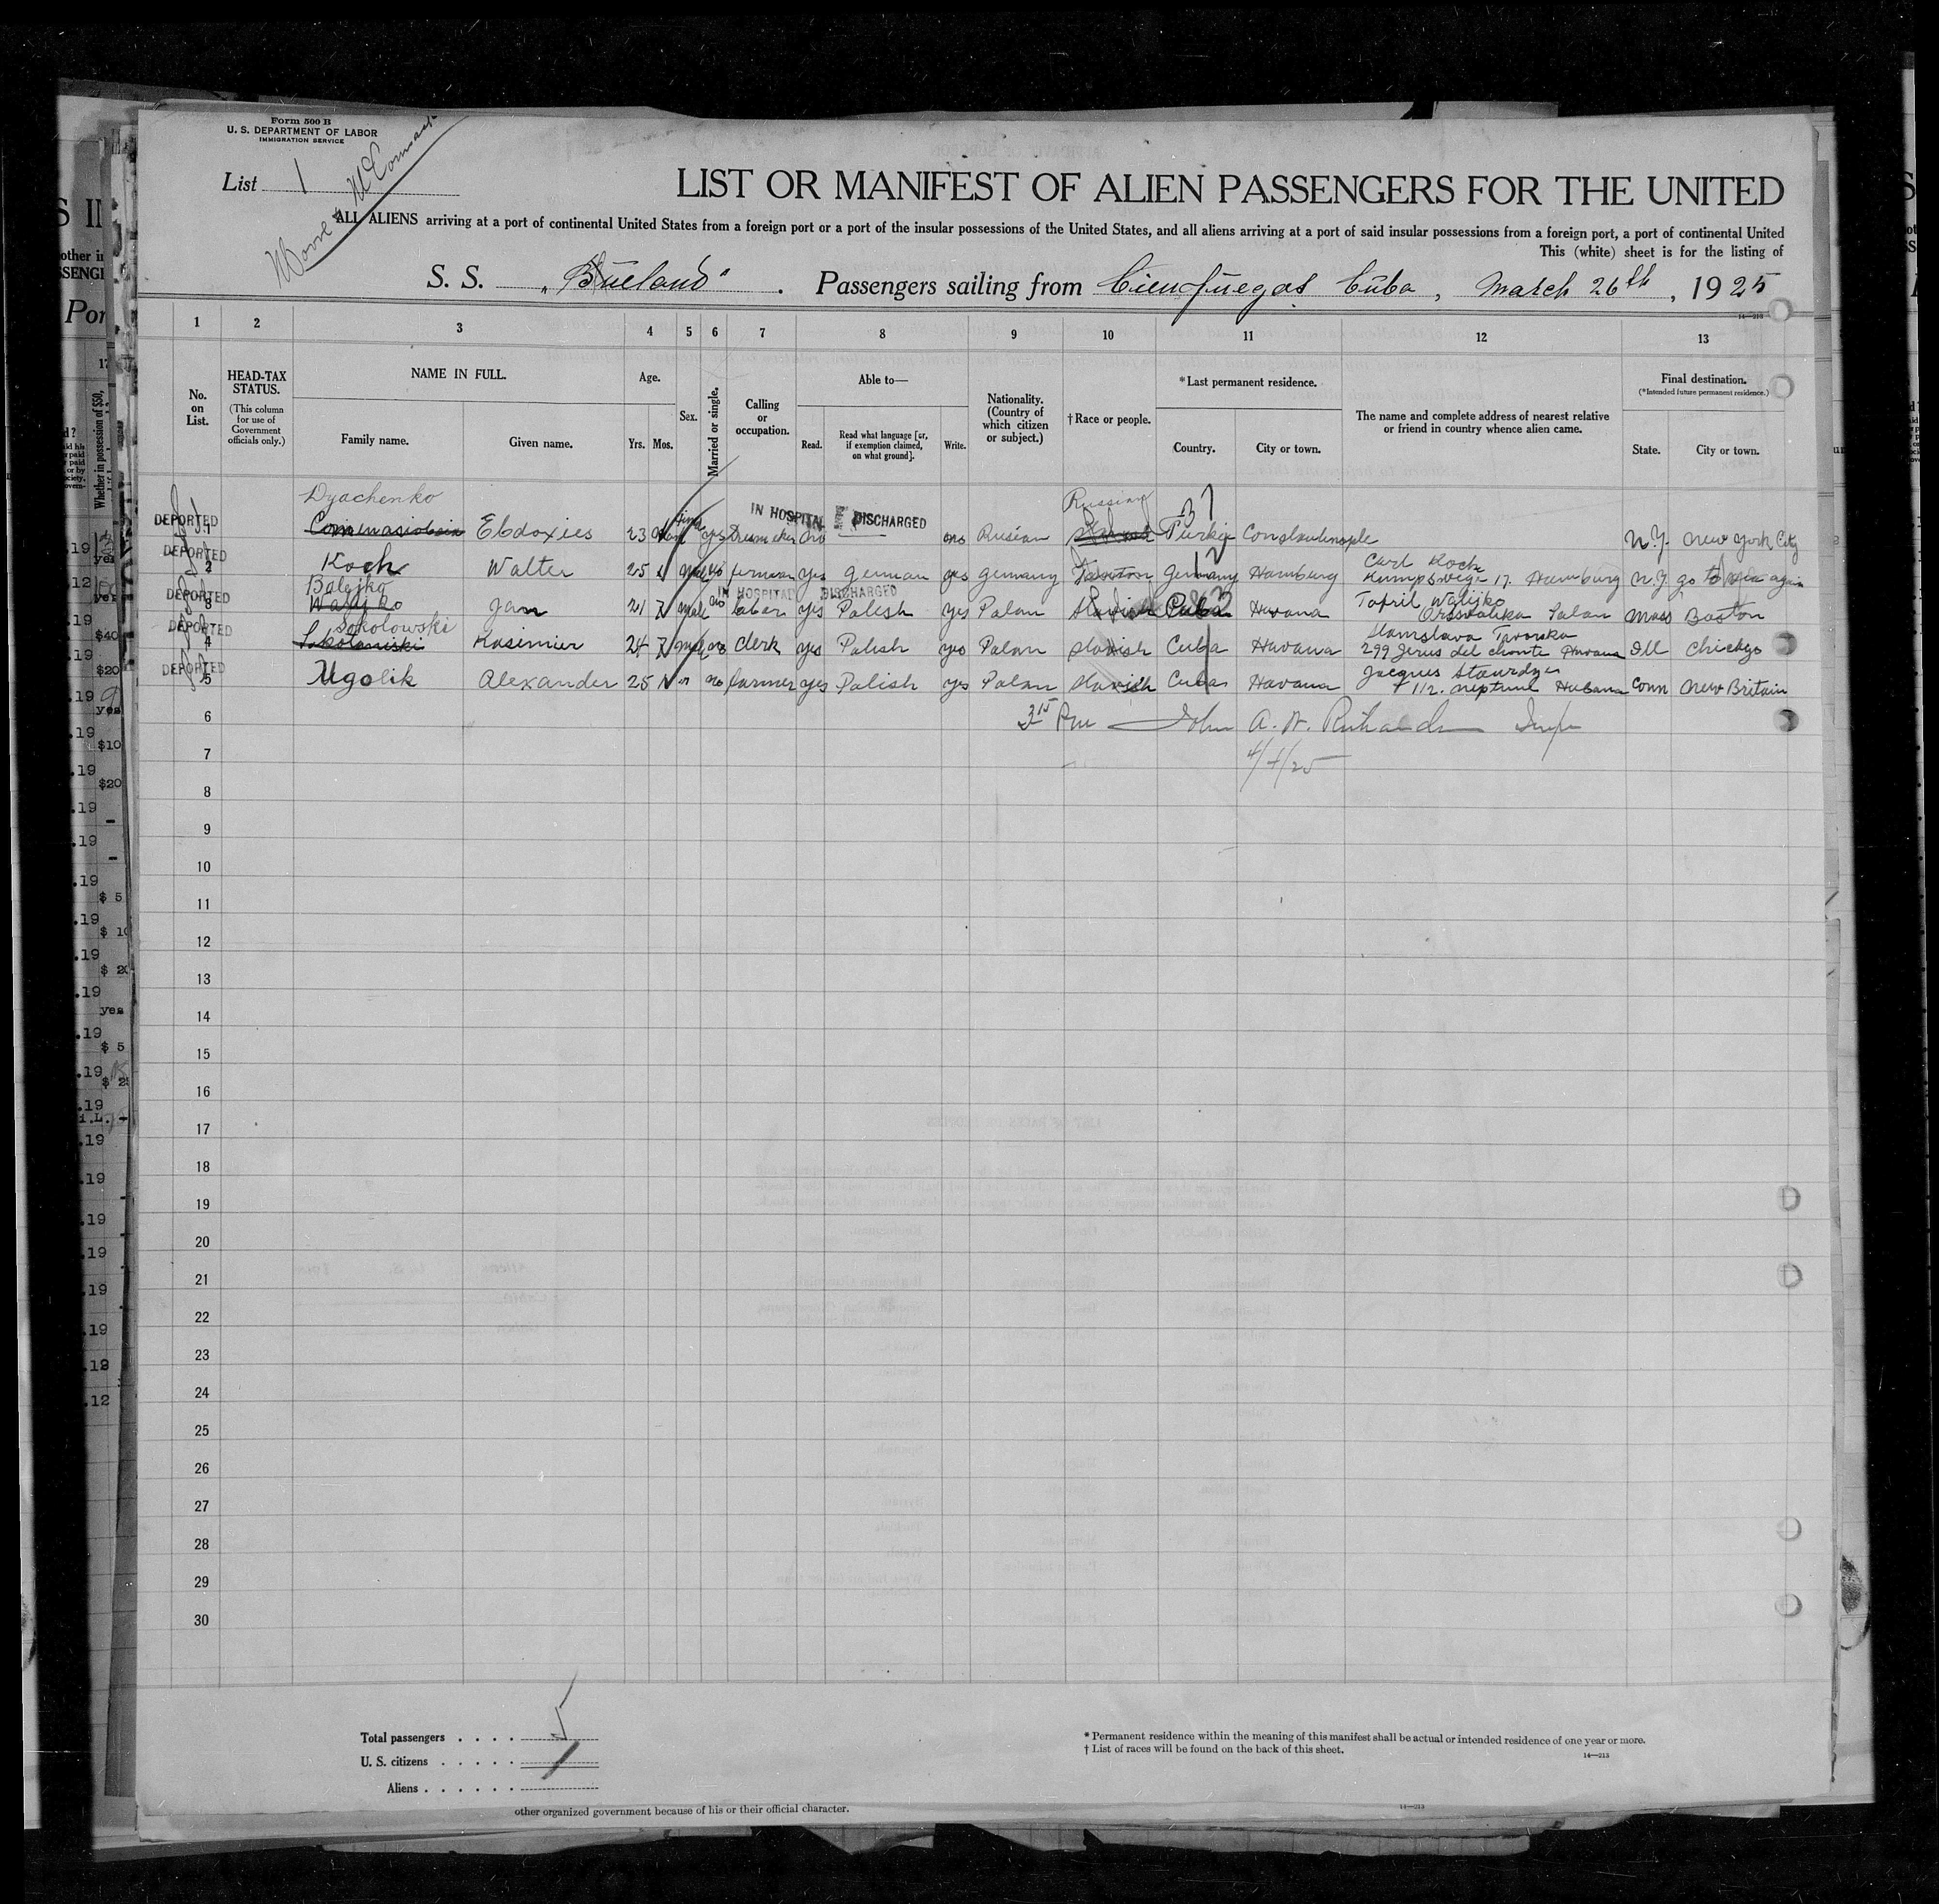 Form 500 B
U. S. DEPARTMENT OF LABOR
IMMIGRATION SERVICE
List 1
LIST OR MANIFEST OF ALIEN PASSENGERS FOR THE UNITED
ALL ALIENS arriving at a port of continental United States from a foreign port or a port of the insular possessions of the United States, and all aliens arriving at a port of said insular possessions from a foreign port, a port of continental United
This (white) sheet is for the listing of
S. S. Passengers sailing from Cienfuegos Cuba, March 26th, 1925
14—213
1 2 3 4 5 6 7 8 9 10 11 12 13
No. on List.
HEAD-TAX STATUS.
(This column for use of Government officials only.)
NAME IN FULL.
Family name. Given name.
Age.
Yrs. Mos.
Sex.
Married or single.
Calling or occupation.
Able to—
Read. Read what language [or, if exemption claimed, on what ground]. Write.
Nationality. (Country of which citizen or subject.)
†Race or people.
*Last permanent residence.
Country. City or town.
The name and complete address of nearest relative or friend in country whence alien came.
Final destination.
(*Intended future permanent residence.)
State. City or town.
Dyachenko Russian
IN HOSPITAL DISCHARGED
DEPORTED 1 Ebdoxies 23 no no Rusian Turkie Constantinople N.Y. New York City
Carl Koch
DEPORTED 2 Koch Walter 25 yes german yes germany Germany Hamburg 17. Hamburg N.Y. go to sea again
IN HOSPITAL DISCHARGED
Balejko
DEPORTED 3 Walijko Jan 21 male no labor yes Polish yes Polan Slavish Cuba Havana Mass Boston
Sokolowski
DEPORTED 4 Kasimier 24 no Clerk yes Polish yes Polan Slavish Cuba Havana 299 Jesus del monte Havana Ill Chicago
DEPORTED 5 Ugolik Alexander 25 no farmer yes Polish yes Polan Slavish Cuba Havana 112. neptune Habana Conn New Britain
6 3 15 Pm John A. W. Insp
7 4/1/25
8
9
10
11
12
13
14
15
16
17
18
19
20
21
22
23
24
25
26
27
28
29
30
Total passengers 5
U. S. citizens
Aliens
* Permanent residence within the meaning of this manifest shall be actual or intended residence of one year or more.
† List of races will be found on the back of this sheet.
14—213
other organized government because of his or their official character.
14—213